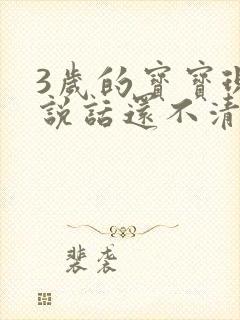 3歲的寶寶現
說話還不清
裴裘